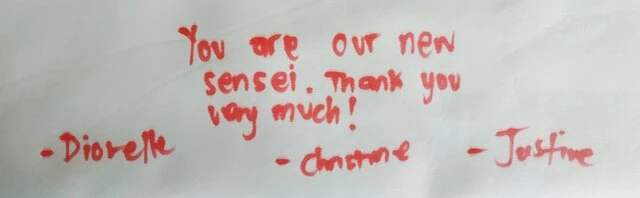 You are our new
sensei. Thank you
very much!
- Diorelle - Christine - Justine